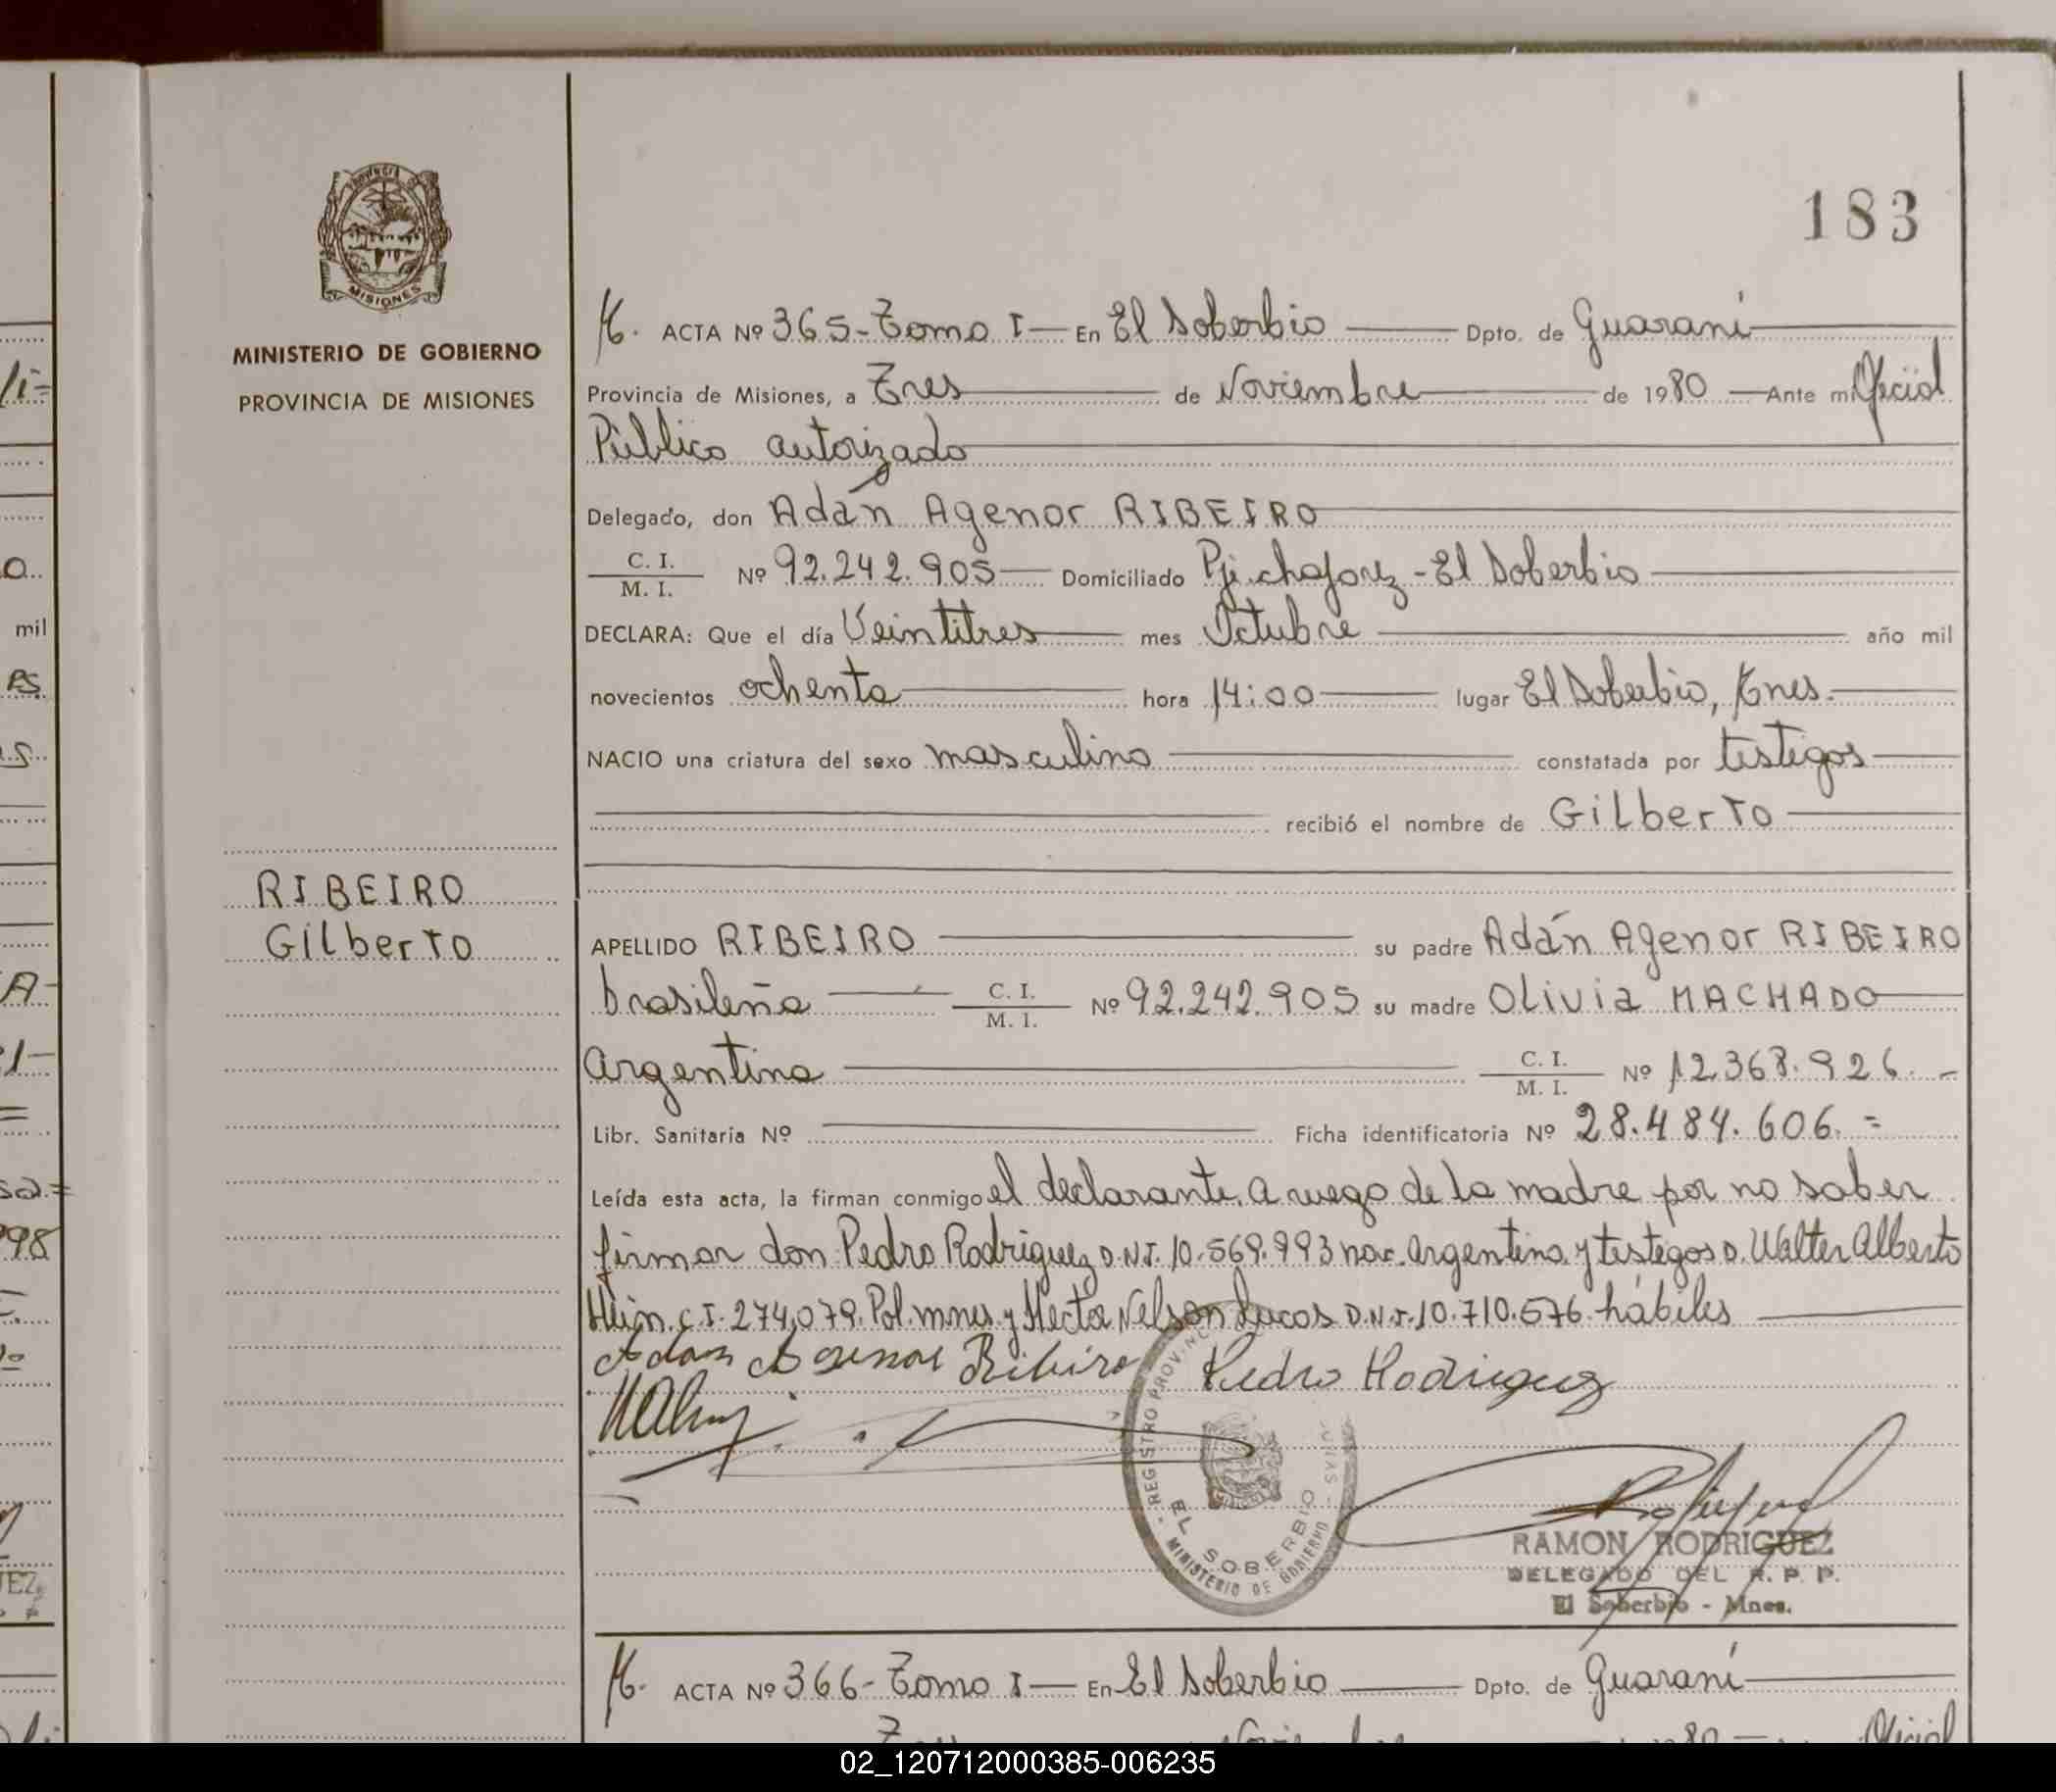 183
MINISTERIO DE GOBIERNO
PROVINCIA DE MISIONES
RIBEIRO
Gilberto
M. ACTA Nº 365-Tomo I — En El Soberbio — Dpto. de Guaraní
Provincia de Misiones, a Tres de Noviembre de 1980 — Ante mí Oficial
Público autorizado
Delegado, don Adán Agenor RIBEIRO
C. I. / M. I. Nº 92.242.905 — Domiciliado Pje. chafariz - El Soberbio
DECLARA: Que el día Veintitres mes Octubre año mil
novecientos ochenta hora 14:00 lugar El Soberbio, Mnes.
NACIO una criatura del sexo masculino constatada por testigos
recibió el nombre de Gilberto
APELLIDO RIBEIRO su padre Adán Agenor RIBEIRO
brasileña C. I. / M. I. Nº 92.242.905 su madre Olivia MACHADO
argentina C. I. / M. I. Nº 12.368.926. -
Libr. Sanitaria Nº Ficha identificatoria Nº 28.484.606. =
Leída esta acta, la firman conmigo el declarante. A ruego de la madre por no saber
firmar don Pedro Rodriguez D.N.I. 10.569.993 nac. argentina y testigos D. Walter Alberto
C.I. 274.079. Pol. mnes y Hector Nelson Lucas D.N.I. 10.710.576. hábiles
Adan Agenor Ribeiro Pedro Rodriguez
REGISTRO PROV.
EL SOBERBIO
MINISTERIO DE GOBIERNO
RAMON RODRIGUEZ
DELEGADO DEL R. P. P.
El Soberbio - Mnes.
M. ACTA Nº 366-Tomo I — En El Soberbio — Dpto. de Guaraní
02_120712000385-006235